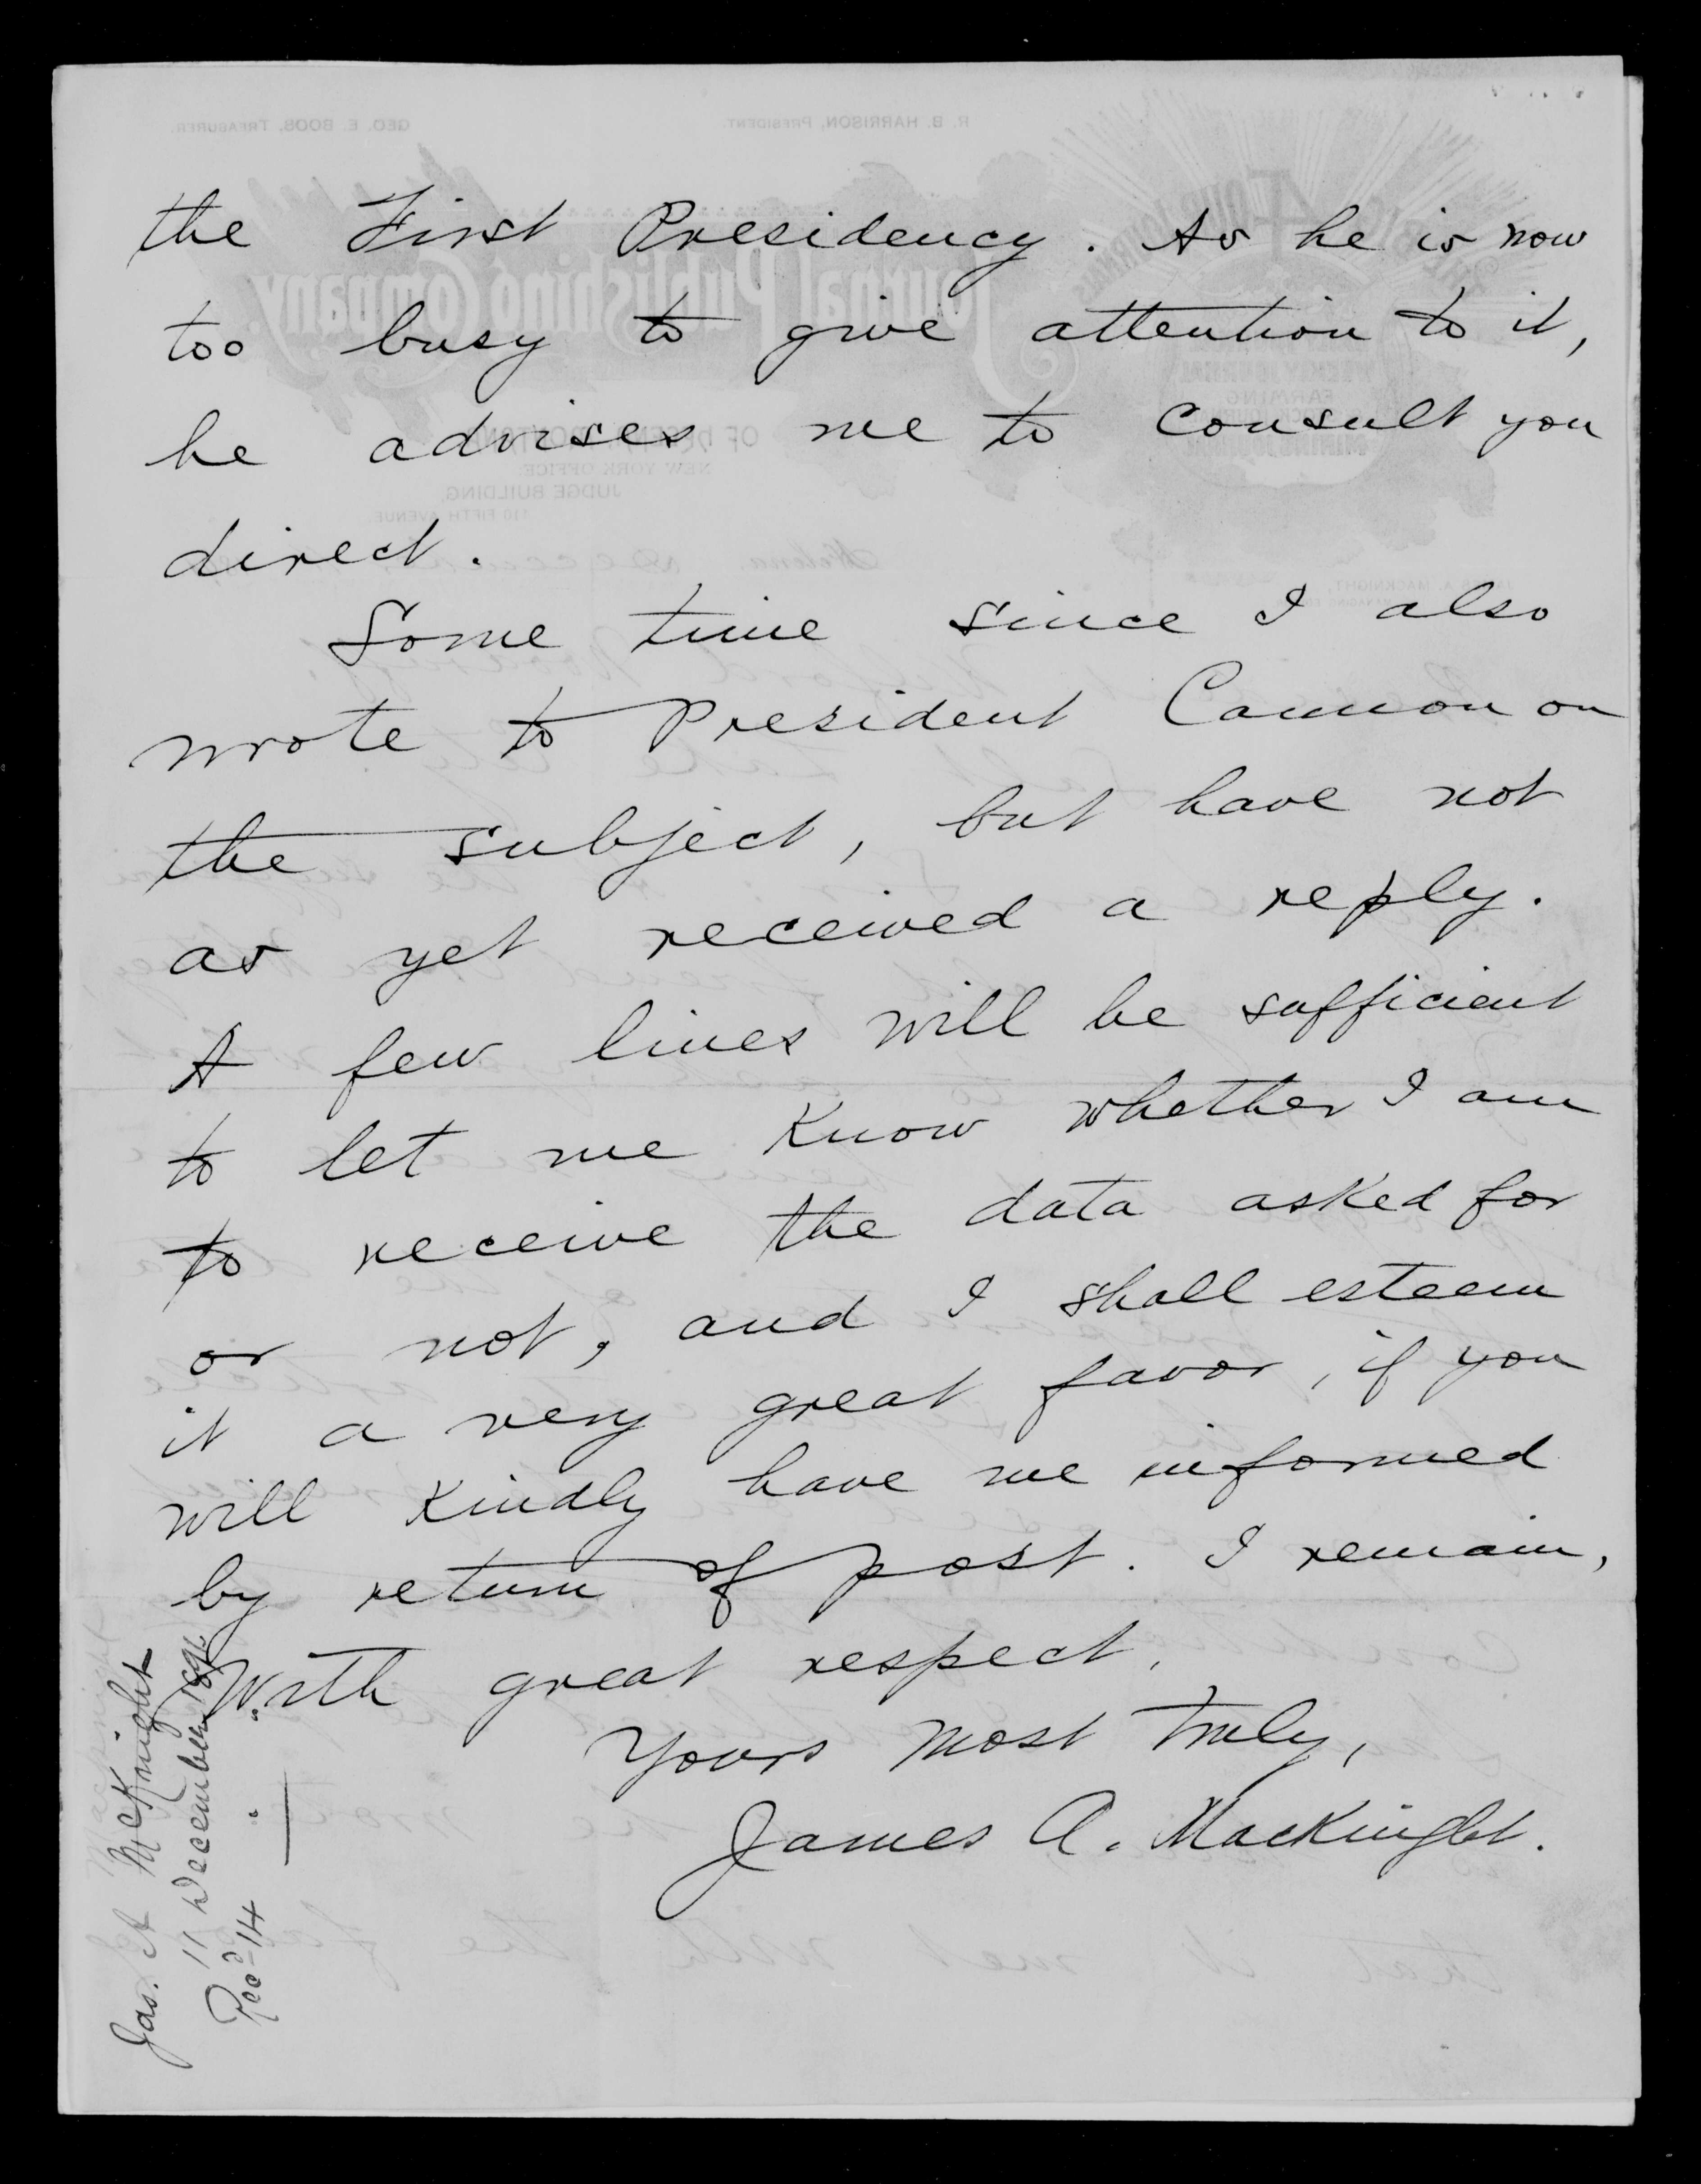 the First Presidency. As he is now
too busy to give attention to it,
he advises me to consult you
direct.
Some time since I also
wrote to President Cannon on
the subject, but have not
as yet received a reply.
A few lines will be sufficient
to let me know whether I am
to receive the data asked for
or not, and I shall esteem
it a very great favor, if you
will kindly have me informed
by return of post. I remain,
With great respect,
Yours most truly,
James A. MacKnight.
Jas. A McKnight
11 December 1891.
Recd 14 " "
R. B. HARRISON, PRESIDENT.
GEO. E. BOOS, TREASURER.
Journal Publishing Company.
NEW YORK OFFICE:
JUDGE BUILDING,
110 FIFTH AVENUE